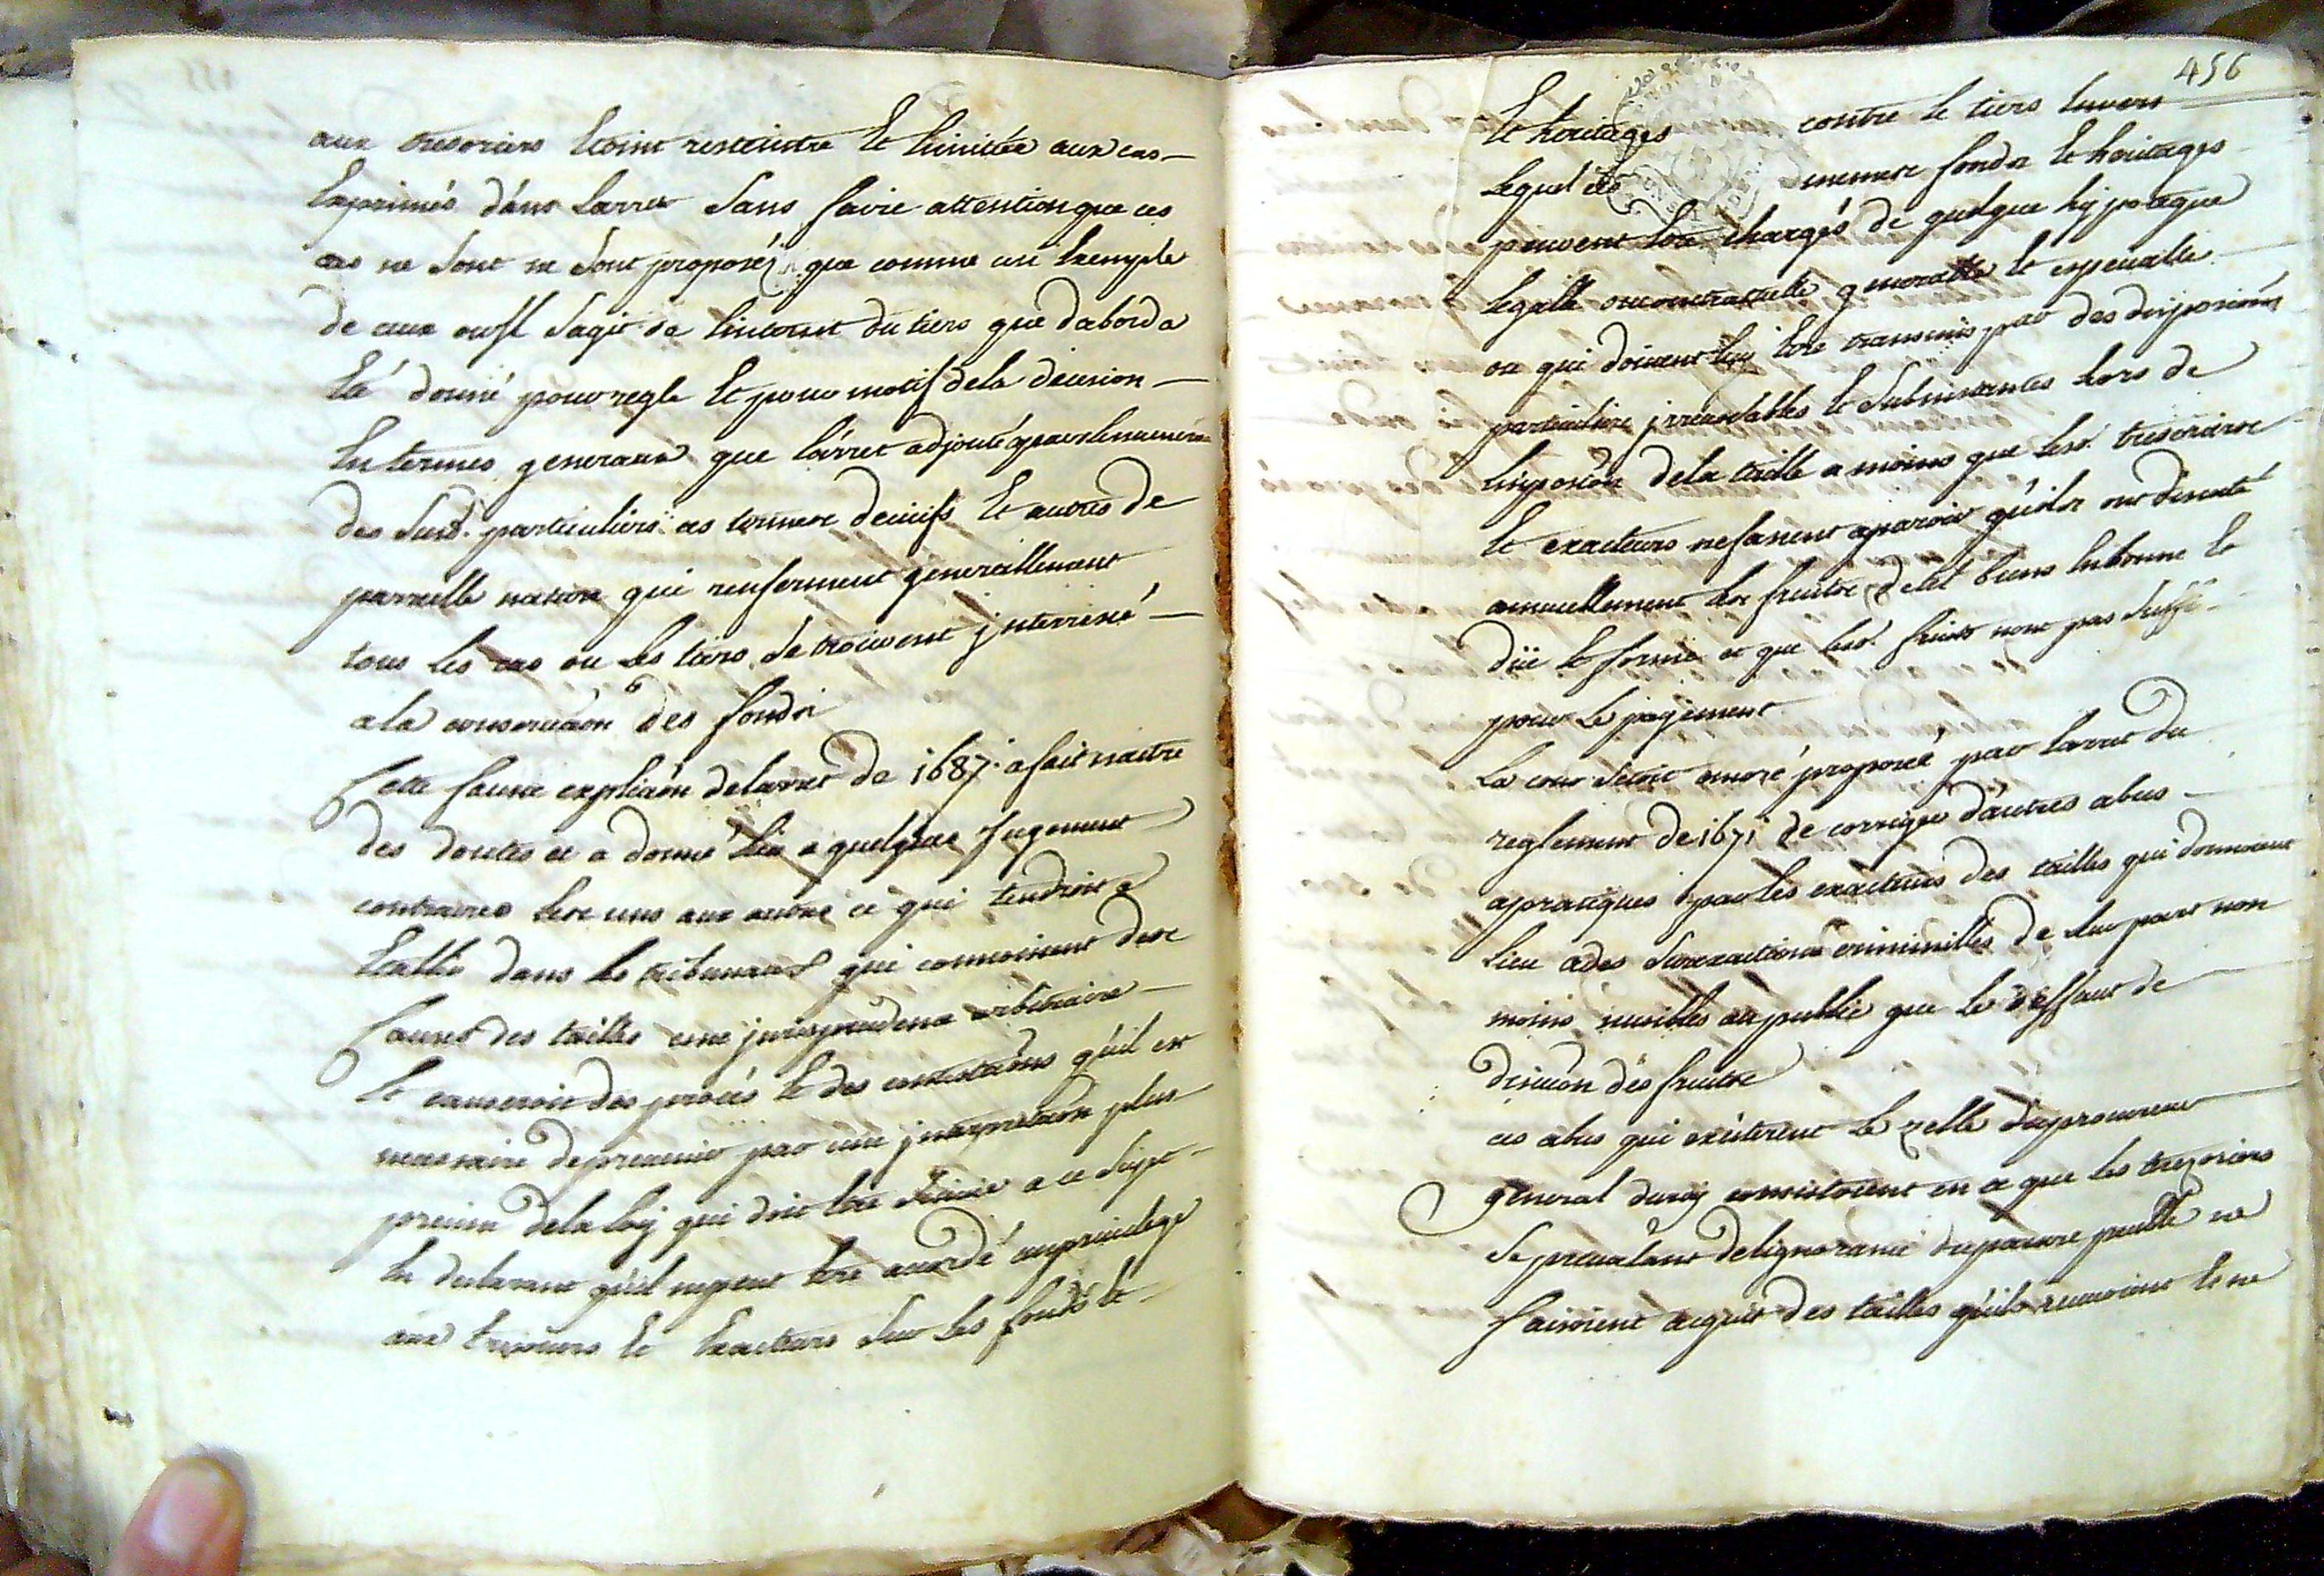 aux tresoriers Etoint restrintre Et limitée aux cas
Exprimés dáns Larret Sans faire attention que ces
cas ne Sont ne Sont proposéz que comme un Exemple
de ceux ou Il Sagit de linterest du tiers que dabord a
Eté donné pour regle Et pour motif de la decision
En termes generaux que lárret adjouté apres lenumera
des Susd. particuliers ces termes decicifs Et autres de
pareille nature qui renferment generallement
tous les cas ou Les tiers Se trouvent jnterressé
a la conservaón des fonds
Cette fausse expliaón delarret de 1687 a fait naitre
des doutes et a donné lieu a quelques Jugement
contraires les uns aux autres ce qui tendroit a
Etablir dans les tribunaux qui connoissent des
Causes des tailles une jurisprudence arbitraire
Et causeroit des procés Et des contestaóns qúil est
necessaire de prevenir par une jnterpretaón plus
precise de la loy qui doit Etre Suivie a ce Sujet
En declarant qúil ne peut Etre accordé aucun privilege
aux tresoriers Et Exacteurs Sur les fonds Et
456
Et heritages contre le tiers Envers
Lequel les memes fonds Et heritages
peuvent Etre chargés de quelque hypoteque
legalle ou contractuelle generalle Et especialle
ou qui doivent luy Etre transmis par des disposiións
particuliere jrrevocables Et Subsistantes hors de
Limposión de la taille a moins que lesd. tresoriers
Et exacteurs ne fassent aparoir qúils ont discuté
annuellement les fruits desd. biens En bonne Et
düe Et forme et que lesd. fruits nont pas Suffi
pour le payement
La cour Setoit encore proposée par Larret du
reglement de 1671 de corriger dáutres abus
apratiques par les exacteurs des tailles qui donnoient
Lieu a des Surexactions criminelles de leur part non
moins nuisibles au public que le deffaut de
discución des fruits
ces abus qui exciterent le zelle du procureur
general du roy consistoient en ce que les trezoriers
Se prevalant de lignorance du pauvre peuble ne
faisoient acquit des tailles qúils recevoient Et ne